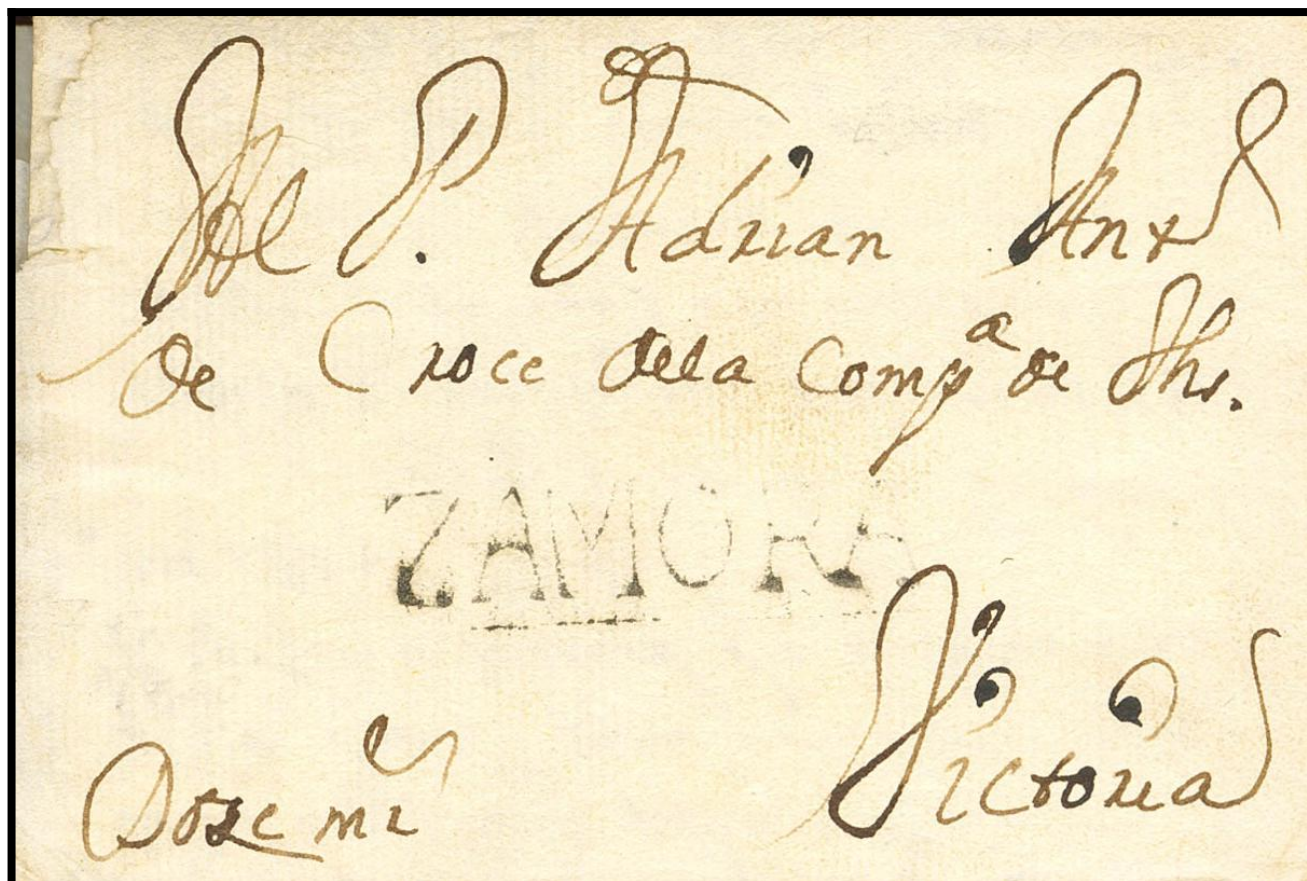 Al P. Adrian Anto
de Croce dela Compa de Jhs.
ZAMORA
Victoria